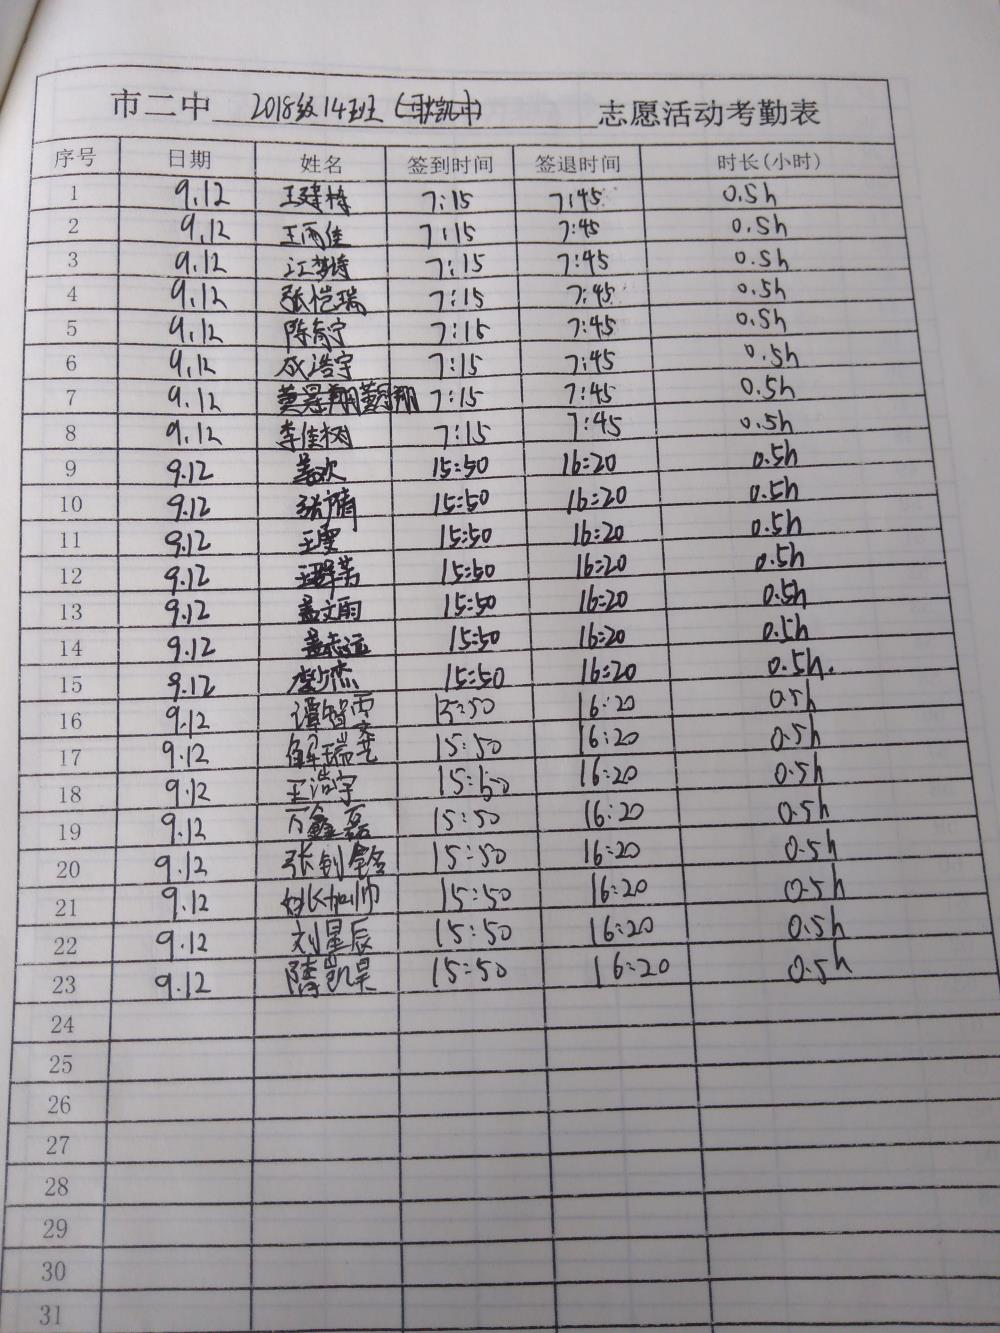 市二中 2018级14班 志愿活动考勤表
序号 日期 姓名 签到时间 签退时间 时长(小时)
1 9.12 王建栋 7:15 7:45 0.5h
2 9.12 王雨佳 7:15 7:45 0.5h
3 9.12 江梦婷 7:15 7:45 0.5h
4 9.12 张恺瑞 7:15 7:45 0.5h
5 9.12 陈奇宁 7:15 7:45 0.5h
6 9.12 成浩宇 7:15 7:45 0.5h
7 9.12 7:15 7:45 0.5h
8 9.12 李佳树 7:15 7:45 0.5h
9 9.12 姜欢 15:50 16:20 0.5h
10 9.12 15:50 16:20 0.5h
11 9.12 王雯 15:50 16:20 0.5h
12 9.12 15:50 16:20 0.5h
13 9.12 孟文雨 15:50 16:20 0.5h
14 9.12 15:50 16:20 0.5h
15 9.12 15:50 16:20 0.5h.
16 9.12 谭智雯 15:50 16:20 0.5h
17 9.12 解瑞芝 15:50 16:20 0.5h
18 9.12 王浩宇 15:50 16:20 0.5h
19 9.12 万鑫磊 15:50 16:20 0.5h
20 9.12 15:50 16:20 0.5h
21 9.12 姚加帅 15:50 16:20 0.5h
22 9.12 刘星辰 15:50 16:20 0.5h
23 9.12 隋凯昊 15:50 16:20 0.5h
24
25
26
27
28
29
30
31